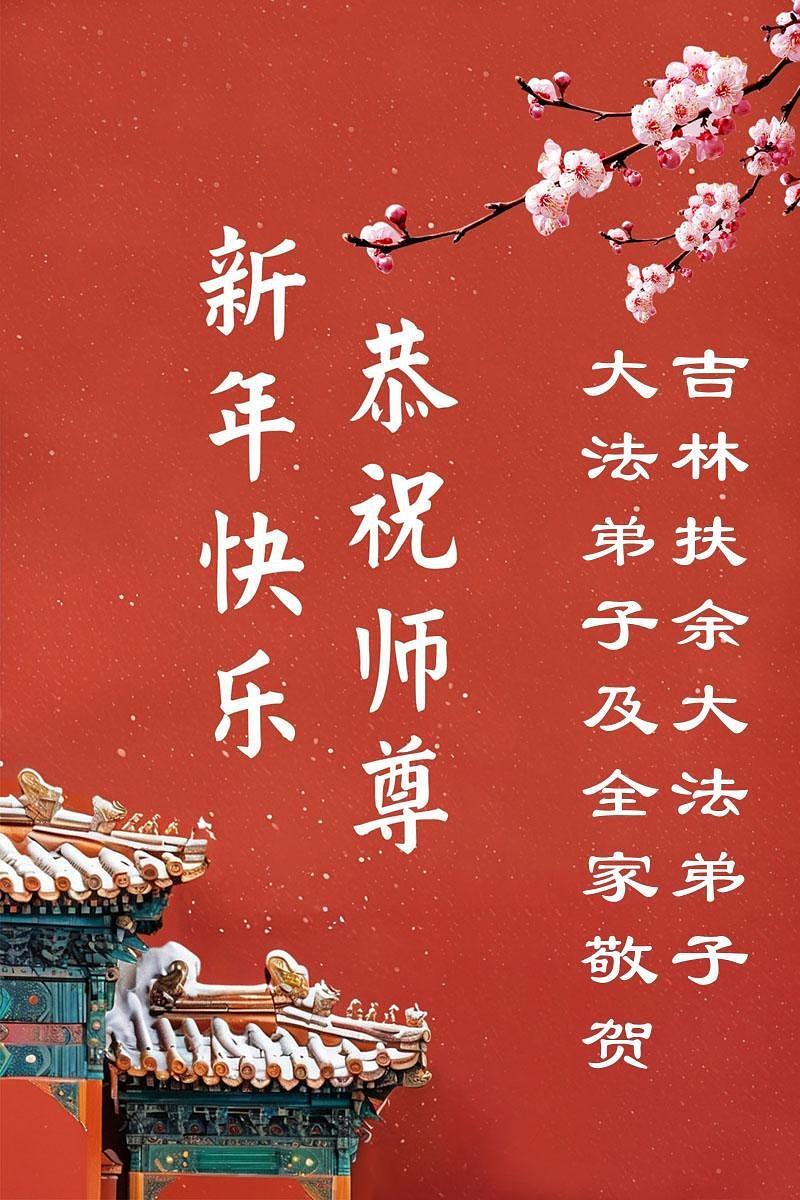 吉林扶余大法弟子
大法弟子及全家敬贺
恭祝师尊
新年快乐